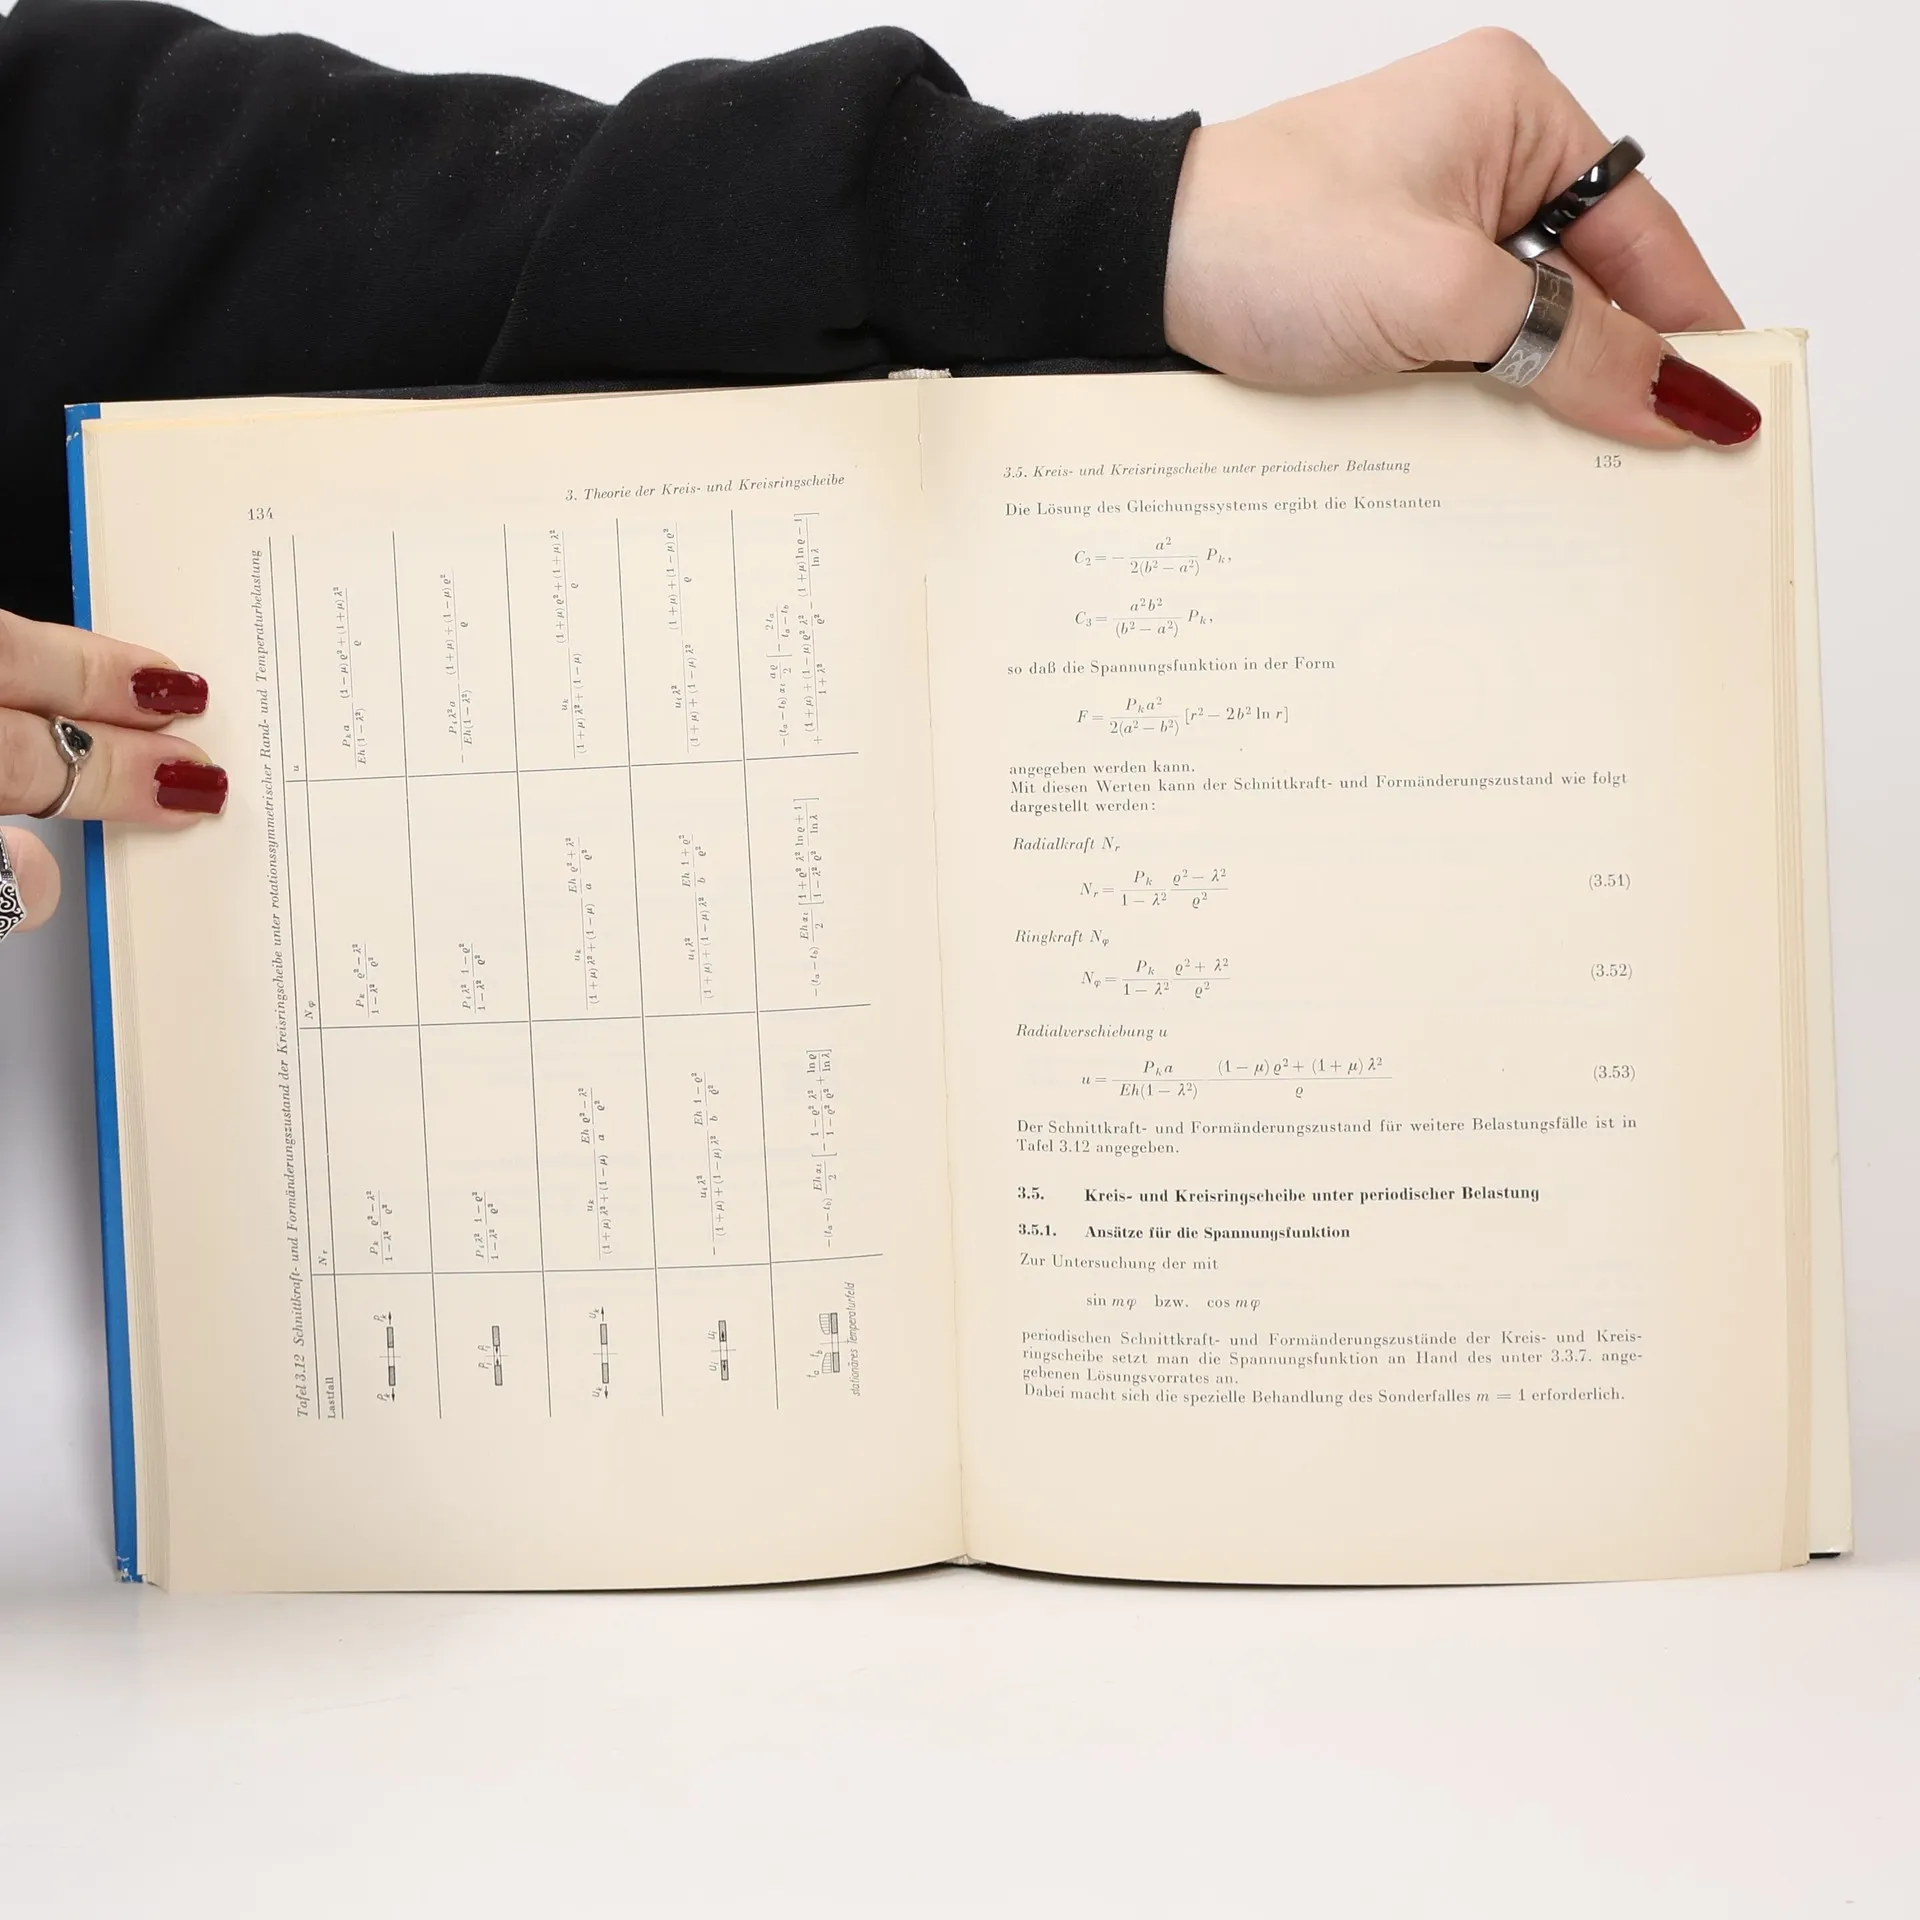 134
3. Theorie der Kreis- und Kreisringscheibe
Tafel 3.12 Schnittkraft- und Formänderungszustand der Kreisringscheibe unter rotationssymmetrischer Rand- und Temperaturbelastung
Lastfall N_r N_φ u
P_k P_k P_k/(1 − λ²) (ϱ² − λ²)/ϱ² P_k/(1 − λ²) (ϱ² − λ²)/ϱ² P_k a/(Eh(1 − λ²)) ((1 − μ) ϱ² + (1 + μ) λ²)/ϱ
P_i P_i P_i λ²/(1 − λ²) (1 − ϱ²)/ϱ² P_i λ²/(1 − λ²) (1 − ϱ²)/ϱ² − P_i λ² a/(Eh(1 − λ²)) ((1 + μ) + (1 − μ) ϱ²)/ϱ
u_k u_k u_k/((1 + μ) λ² + (1 − μ)) Eh/a (ϱ² − λ²)/ϱ² u_k/((1 + μ) λ² + (1 − μ)) Eh/a (ϱ² + λ²)/ϱ² u_k/((1 + μ) λ² + (1 − μ)) ((1 + μ) ϱ² + (1 + μ) λ²)/ϱ
u_i u_i − u_i λ²/((1 + μ) + (1 − μ) λ²) Eh/b (1 − ϱ²)/ϱ² u_i λ²/((1 + μ) + (1 − μ) λ²) Eh/b (1 + ϱ²)/ϱ² u_i λ²/((1 + μ) + (1 − μ) λ²) ((1 + μ) + (1 − μ) ϱ²)/ϱ
t_a t_b
stationäres Temperaturfeld
3.5. Kreis- und Kreisringscheibe unter periodischer Belastung 135
Die Lösung des Gleichungssystems ergibt die Konstanten
C₂ = − a²/(2(b² − a²)) P_k,
C₃ = a²b²/(b² − a²) P_k,
so daß die Spannungsfunktion in der Form
F = P_k a²/(2(a² − b²)) [r² − 2b² ln r]
angegeben werden kann.
Mit diesen Werten kann der Schnittkraft- und Formänderungszustand wie folgt
dargestellt werden:
Radialkraft N_r
N_r = P_k/(1 − λ²) (ϱ² − λ²)/ϱ² (3.51)
Ringkraft N_φ
N_φ = P_k/(1 − λ²) (ϱ² + λ²)/ϱ² (3.52)
Radialverschiebung u
u = P_k a/(Eh(1 − λ²)) ((1 − μ) ϱ² + (1 + μ) λ²)/ϱ (3.53)
Der Schnittkraft- und Formänderungszustand für weitere Belastungsfälle ist in
Tafel 3.12 angegeben.
3.5. Kreis- und Kreisringscheibe unter periodischer Belastung
3.5.1. Ansätze für die Spannungsfunktion
Zur Untersuchung der mit
sin mφ bzw. cos mφ
periodischen Schnittkraft- und Formänderungszustände der Kreis- und Kreis-
ringscheibe setzt man die Spannungsfunktion an Hand des unter 3.3.7. ange-
gebenen Lösungsvorrates an.
Dabei macht sich die spezielle Behandlung des Sonderfalles m = 1 erforderlich.